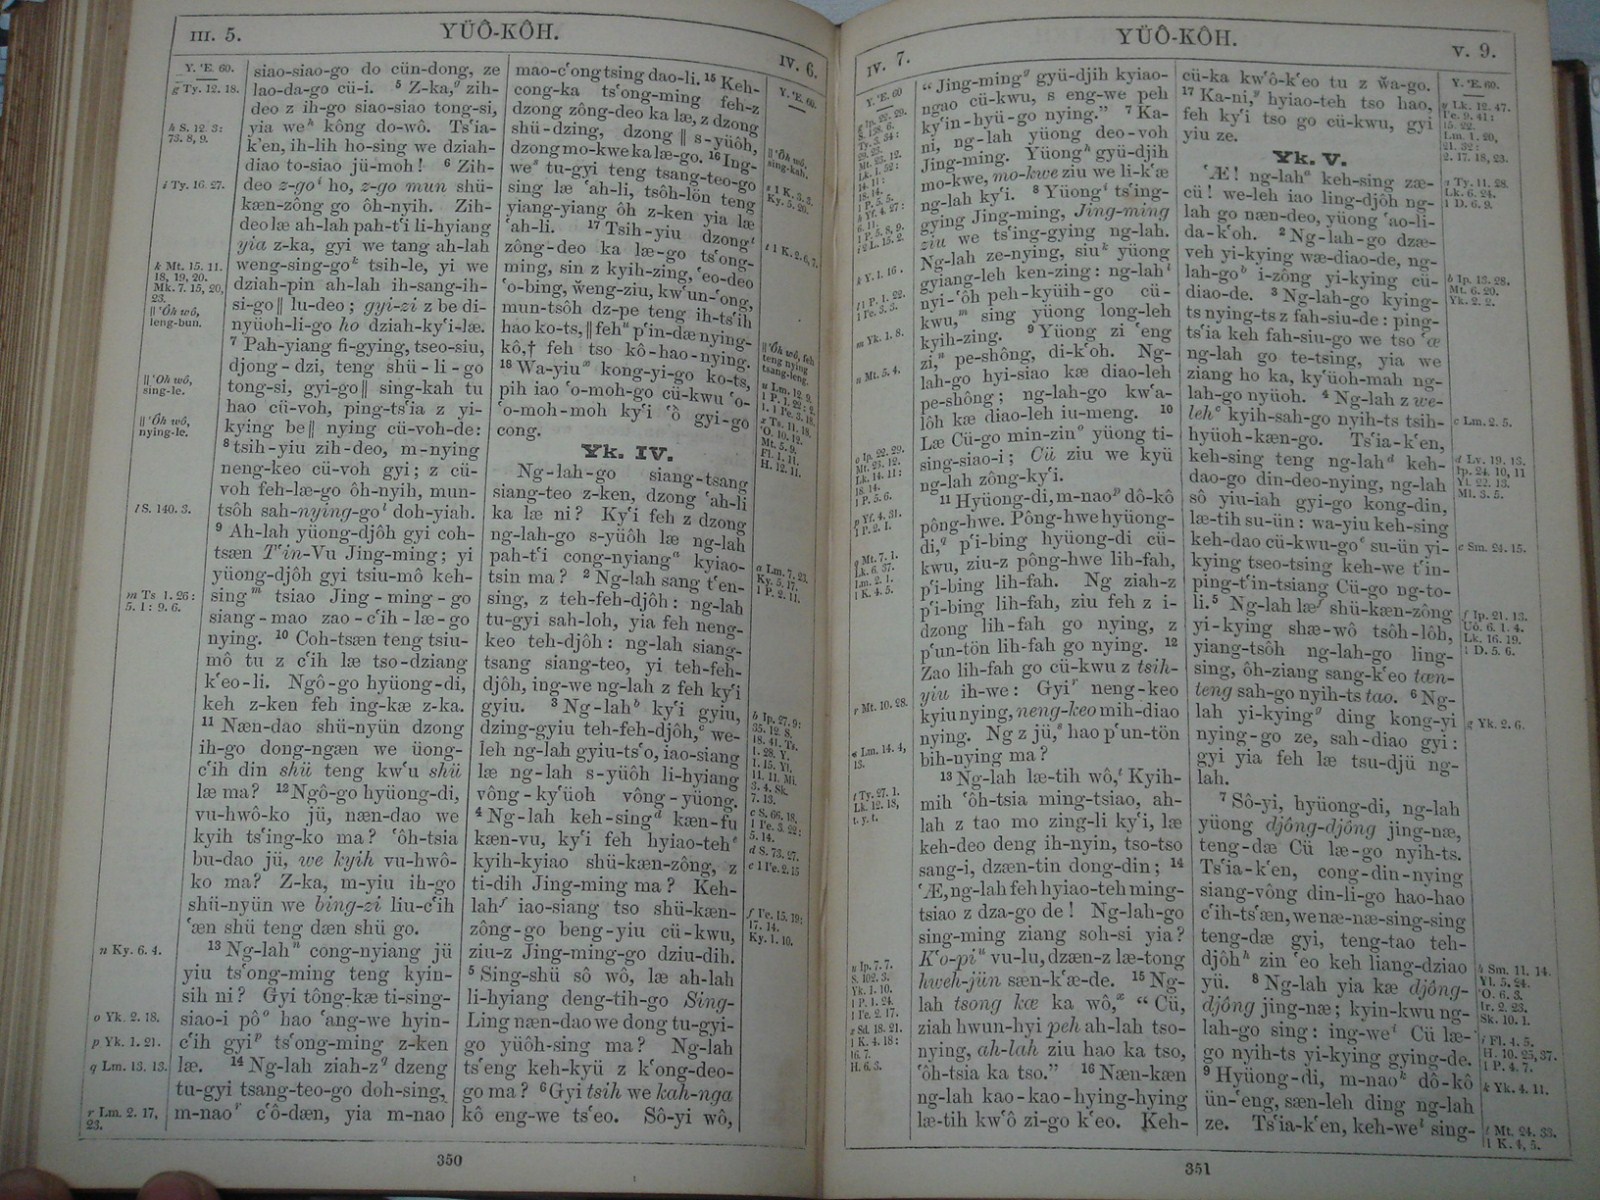 III. 5.
YÜÔ-KÔH.
IV. 6.
Y. ʻE. 60.
g Ty. 12. 18.
h S. 12. 3:
73. 8, 9.
i Ty. 16. 27.
k Mt. 15. 11.
18, 19, 20.
Mk. 7. 15, 20,
23.
|| ʻÔh wô,
leng-bun.
|| ʻÔh wô,
sing-le.
|| ʻÔh wô,
nying-le.
l S. 140. 3.
m Ts 1. 26:
5. 1: 9. 6.
n Ky. 6. 4.
o Yk. 2. 18.
p Yk. 1. 21.
q Lm. 13. 13.
r Lm. 2. 17,
23.
siao-siao-go do cün-dong, ze
lao-da-go cü-i. 5 Z-ka,g zih-
deo z ih-go siao-siao tong-si,
yia weh kông do-wô. Tsʻia-
kʻen, ih-lih ho-sing we dziah-
diao to-siao jü-moh! 6 Zih-
deo z-goi ho, z-go mun shü-
kæn-zông go ôh-nyih. Zih-
deo læ ah-lah pah-tʻi li-hyiang
yia z-ka, gyi we tang ah-lah
weng-sing-gok tsih-le, yi we
dziah-pin ah-lah ih-sang-ih-
si-go || lu-deo; gyi-zi z be di-
nyüoh-li-go ho dziah-kyʻi-læ.
7 Pah-yiang fi-gying, tseo-siu,
djong-dzi, teng shü-li-go
tong-si, gyi-go || sing-kah tu
hao cü-voh, ping-tsʻia z yi-
kying be || nying cü-voh-de:
8 tsih-yiu zih-deo, m-nying
neng-keo cü-voh gyi; z cü-
voh feh-læ-go ôh-nyih, mun-
tsôh sah-nying-gol doh-yiah.
9 Ah-lah yüong-djôh gyi coh-
tsæn Tʻin-Vu Jing-ming; yi
yüong-djôh gyi tsiu-mô keh-
singm tsiao Jing-ming-go
siang-mao zao-cʻih-læ-go
nying. 10 Coh-tsæn teng tsiu-
mô tu z cʻih læ tso-dziang
kʻeo-li. Ngô-go hyüong-di,
keh z-ken feh ing-kæ z-ka.
11 Næn-dao shü-nyün dzong
ih-go dong-ngæn we üong-
cʻih din shü teng kwʻu shü
læ ma? 12 Ngô-go hyüong-di,
vu-hwô-ko jü, næn-dao we
kyih tsʻing-ko ma? ʻôh-tsia
bu-dao jü, we kyih vu-hwô-
ko ma? Z-ka, m-yiu ih-go
shü-nyün we bing-zi liu-cʻih
ʻæn shü teng dæn shü go.
13 Ng-lahn cong-nyiang jü
yiu tsʻong-ming teng kyin-
sih ni? Gyi tông-kæ ti-sing-
siao-i pôo hao ʻang-we hyin-
cʻih gyip tsʻong-ming z-ken
læ. 14 Ng-lah ziah-zq dzeng
tu-gyi tsang-teo-go doh-sing,
m-naor cʻô-dæn, yia m-nao
mao-cʻong tsing dao-li. 15 Keh-
cong-ka tsʻong-ming feh-z
dzong zông-deo ka læ, z dzong
shü-dzing, dzong || s-yüôh,
dzong mo-kwe ka læ-go. 16 Ing-
wes tu-gyi teng tsang-teo-go
sing læ ʻah-li, tsôh-lön teng
yiang-yiang ôh z-ken yia læ
ʻah-li. 17 Tsih-yiu dzongt
zông-deo ka læ-go tsʻong-
ming, sin z kyih-zing, ʻeo-deo
ʻo-bing, w̌eng-ziu, kwʻun-ʻong,
mun-tsôh dz-pe teng ih-tsʻih
hao ko-ts, || fehu pʻin-dæ nying-
kô,† feh tso kô-hao-nying.
18 Wa-yiux kong-yi-go ko-ts,
pih iao ʻo-moh-go cü-kwu ʻo-
ʻo-moh-moh kyʻi ʻô gyi-go
cong.
Yk. IV.
Ng-lah-go siang-tsang
siang-teo z-ken, dzong ʻah-li
ka læ ni? Kyʻi feh z dzong
ng-lah-go s-yüôh læ ng-lah
pah-tʻi cong-nyianga kyiao-
tsin ma? 2 Ng-lah sang tʻen-
sing, z teh-feh-djôh: ng-lah
tu-gyi sah-loh, yia feh neng-
keo teh-djôh: ng-lah siang-
tsang siang-teo, yi teh-feh-
djôh, ing-we ng-lah z feh kyʻi
gyiu. 3 Ng-lahb kyʻi gyiu,
dzing-gyiu teh-feh-djôh,c we-
leh ng-lah gyiu-tsʻo, iao-siang
læ ng-lah s-yüôh li-hyiang
vông-kyʻüoh vông-yüong.
4 Ng-lah keh-singd kæn-fu
kæn-vu, kyʻi feh hyiao-tehe
kyih-kyiao shü-kæn-zông, z
ti-dih Jing-ming ma? Keh-
lahf iao-siang tso shü-kæn-
zông-go beng-yiu cü-kwu,
ziu-z Jing-ming-go dziu-dih.
5 Sing-shü sô wô, læ ah-lah
li-hyiang deng-tih-go Sing-
Ling næn-dao we dong tu-gyi-
go yüôh-sing ma? Ng-lah
tsʻeng keh-kyü z kʻong-deo-
go ma? 6 Gyi tsih we kah-nga
kô eng-we tsʻeo. Sô-yi wô,
Y. ʻE. 60.
|| ʻÔh wô,
sing-kah.
s 1 K. 3. 3.
Ky. 5. 20.
t 1 K. 2. 6, 7.
|| ʻÔh wô, feh
teng nying
tsang-leng.
u Lm. 12. 9.
a Lm. 7. 23.
Ky. 5. 17.
1 P. 2. 11.
b Ip. 27. 9:
35. 12. S.
18. 41. Ts.
1. 28. Y.
1. 15. Yi.
11. 11. Mi.
3. 4. Sk.
7. 13.
c S. 66. 18.
5. 14.
d S. 73. 27.
f Pe. 15. 19:
17. 14.
Ky. 1. 10.
350
IV. 7.
YÜÔ-KÔH.
V. 9.
Y. ʻE. 60
k Y. 1. 16.
m Yk. 1. 8.
n Mt. 5. 4.
o Ip. 22. 29.
Mt. 23. 12.
Lk. 14. 11:
18. 14.
1 P. 5. 6.
p Yf. 4. 31.
1 P. 2. 1.
q Mt. 7. 1.
Lk. 6. 37.
Lm. 2. 1.
1 K. 4. 5.
r Mt. 10. 28.
s Lm. 14. 4,
13.
t Ty. 27. 1.
Lk. 12. 18,
t. y. t.
u Ip. 7. 7.
S. 102. 3.
Yk. 1. 10.
1 P. 1. 24.
x Sd. 18. 21.
1 K. 4. 18:
16. 7.
H. 6. 3.
“Jing-mingg gyü-djih kyiao-
ngao cü-kwu, s eng-we peh
kyʻin-hyü-go nying.” 7 Ka-
ni, ng-lah yüong deo-voh
Jing-ming. Yüongh gyü-djih
mo-kwe, mo-kwe ziu we li-kʻæ
ng-lah kyʻi. 8 Yüongi tsʻing-
gying Jing-ming, Jing-ming
ziu we tsʻing-gying ng-lah.
Ng-lah ze-nying, siuk yüong
gyiang-leh ken-zing: ng-lahl
nyi-ʻôh peh-kyüih-go cü-
kwu,m sing yüong long-leh
kyih-zing. 9 Yüong zi ʻeng
zi,n pe-shông, di-kʻoh. Ng-
lah-go hyi-siao kæ diao-leh
pe-shông; ng-lah-go kwʻa-
lôh kæ diao-leh iu-meng. 10
Læ Cü-go min-zino yüong ti-
sing-siao-i; Cü ziu we kyü
ng-lah zông-kyʻi.
11 Hyüong-di, m-naop dô-kô
pông-hwe. Pông-hwe hyüong-
di,q pʻi-bing hyüong-di cü-
kwu, ziu-z pông-hwe lih-fah,
pʻi-bing lih-fah. Ng ziah-z
pʻi-bing lih-fah, ziu feh z i-
dzong lih-fah go nying, z
pʻun-tön lih-fah go nying. 12
Zao lih-fah go cü-kwu z tsih-
yiu ih-we: Gyir neng-keo
kyiu nying, neng-keo mih-diao
nying. Ng z jü,s hao pʻun-tön
bih-nying ma?
13 Ng-lah læ-tih wô,t Kyih-
mih ʻôh-tsia ming-tsiao, ah-
lah z tao mo zing-li kyʻi, læ
keh-deo deng ih-nyin, tso-tso
sang-i, dzæn-tin dong-din; 14
ʻÆ, ng-lah feh hyiao-teh ming-
tsiao z dza-go de! Ng-lah-go
sing-ming ziang soh-si yia?
Kʻo-piu vu-lu, dzæn-z læ-tong
hweh-jün sæn-kʻæ-de. 15 Ng-
lah tsong kæ ka wô,x “Cü,
ziah hwun-hyi peh ah-lah tso-
nying, ah-lah ziu hao ka tso,
ʻôh-tsia ka tso.” 16 Næn-kæn
ng-lah kao-kao-hying-hying
læ-tih kwʻô zi-go kʻeo. Keh-
cü-ka kwʻô-kʻeo tu z w̌a-go.
17 Ka-ni,y hyiao-teh tso hao,
feh kyʻi tso go cü-kwu, gyi
yiu ze.
Yk. V.
ʻÆ! ng-laha keh-sing zæ-
cü! we-leh iao ling-djôh ng-
lah go næn-deo, yüong ʻao-li-
da-kʻoh. 2 Ng-lah-go dzæ-
veh yi-kying wæ-diao-de, ng-
lah-gob i-zông yi-kying cü-
diao-de. 3 Ng-lah-go kying-
ts nying-ts z fah-siu-de: ping-
tsʻia keh fah-siu-go we tso ʻæ
ng-lah go te-tsing, yia we
ziang ho ka, kyʻüoh-mah ng-
lah-go nyüoh. 4 Ng-lah z we-
lehc kyih-sah-go nyih-ts tsih-
hyüoh-kæn-go. Tsʻia-kʻen,
keh-sing teng ng-lahd keh-
dao-go din-deo-nying, ng-lah
sô yiu-iah gyi-go kong-din,
læ-tih su-ün: wa-yiu keh-sing
keh-dao cü-kwu-goe su-ün yi-
kying tseo-tsing keh-we tʻin-
ping-tʻin-tsiang Cü-go ng-to-
li. 5 Ng-lah læf shü-kæn-zông
yi-kying shæ-wô tsôh-lôh,
yiang-tsôh ng-lah-go ling-
sing, ôh-ziang sang-kʻeo tæn-
teng sah-go nyih-ts tao. 6 Ng-
lah yi-kyingg ding kong-yi
nying-go ze, sah-diao gyi:
gyi yia feh læ tsu-djü ng-
lah.
7 Sô-yi, hyüong-di, ng-lah
yüong djông-djông jing-næ,
teng-dæ Cü læ-go nyih-ts.
Tsʻia-kʻen, cong-din-nying
siang-vông din-li-go hao-hao
cʻih-tsʻæn, we næ-næ-sing-sing
teng-dæ gyi, teng-tao teh-
djôhh zin ʻeo keh liang-dziao
yü. 8 Ng-lah yia kæ djông-
djông jing-næ; kyin-kwu ng-
lah-go sing: ing-wei Cü læ-
go nyih-ts yi-kying gying-de.
9 Hyüong-di, m-naok dô-kô
ün-ʻeng, sæn-leh ding ng-lah
ze. Tsʻia-kʻen, keh-wel sing-
Y. ʻE. 60.
y Lk. 12. 47.
Pe. 9. 41:
15. 22.
Lm. 1. 20,
21. 32:
2. 17, 18, 23.
a Ty. 11. 28.
Lk. 6. 24.
1 D. 6. 9.
b Ip. 13. 28.
Mt. 6. 20.
Yk. 2. 2.
c Lm. 2. 5.
d Lv. 19. 13.
Ip. 24. 10, 11
Yi. 22. 13.
Ml. 3. 5.
e Sm. 24. 15.
f Ip. 21. 13.
Uô. 6. 1. 4.
Lk. 16. 19.
1 D. 5. 6.
g Yk. 2. 6.
h Sm. 11. 14.
Yl. 5. 24.
ʻO. 6. 3.
Ir. 2. 23.
Sk. 10. 1.
i Fl. 4. 5.
H. 10. 25, 37.
1 P. 4. 7.
k Yk. 4. 11.
l Mt. 24. 33.
1 K. 4, 5.
351